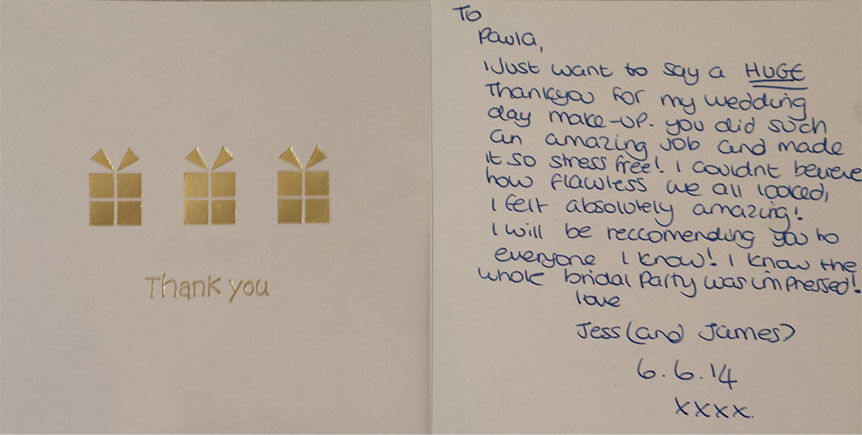 Thank you
To
Paula,
I Just want to say a HUGE
Thankyou for my wedding
day make-up. you did such
an amazing job and made
it so stress free! I couldnt believe
how flawless we all looked,
I felt absolutely amazing!
I will be reccomending you to
everyone I know! I know the
whole bridal Party was impressed!
love
Jess (and James)
6.6.14
xxxx.